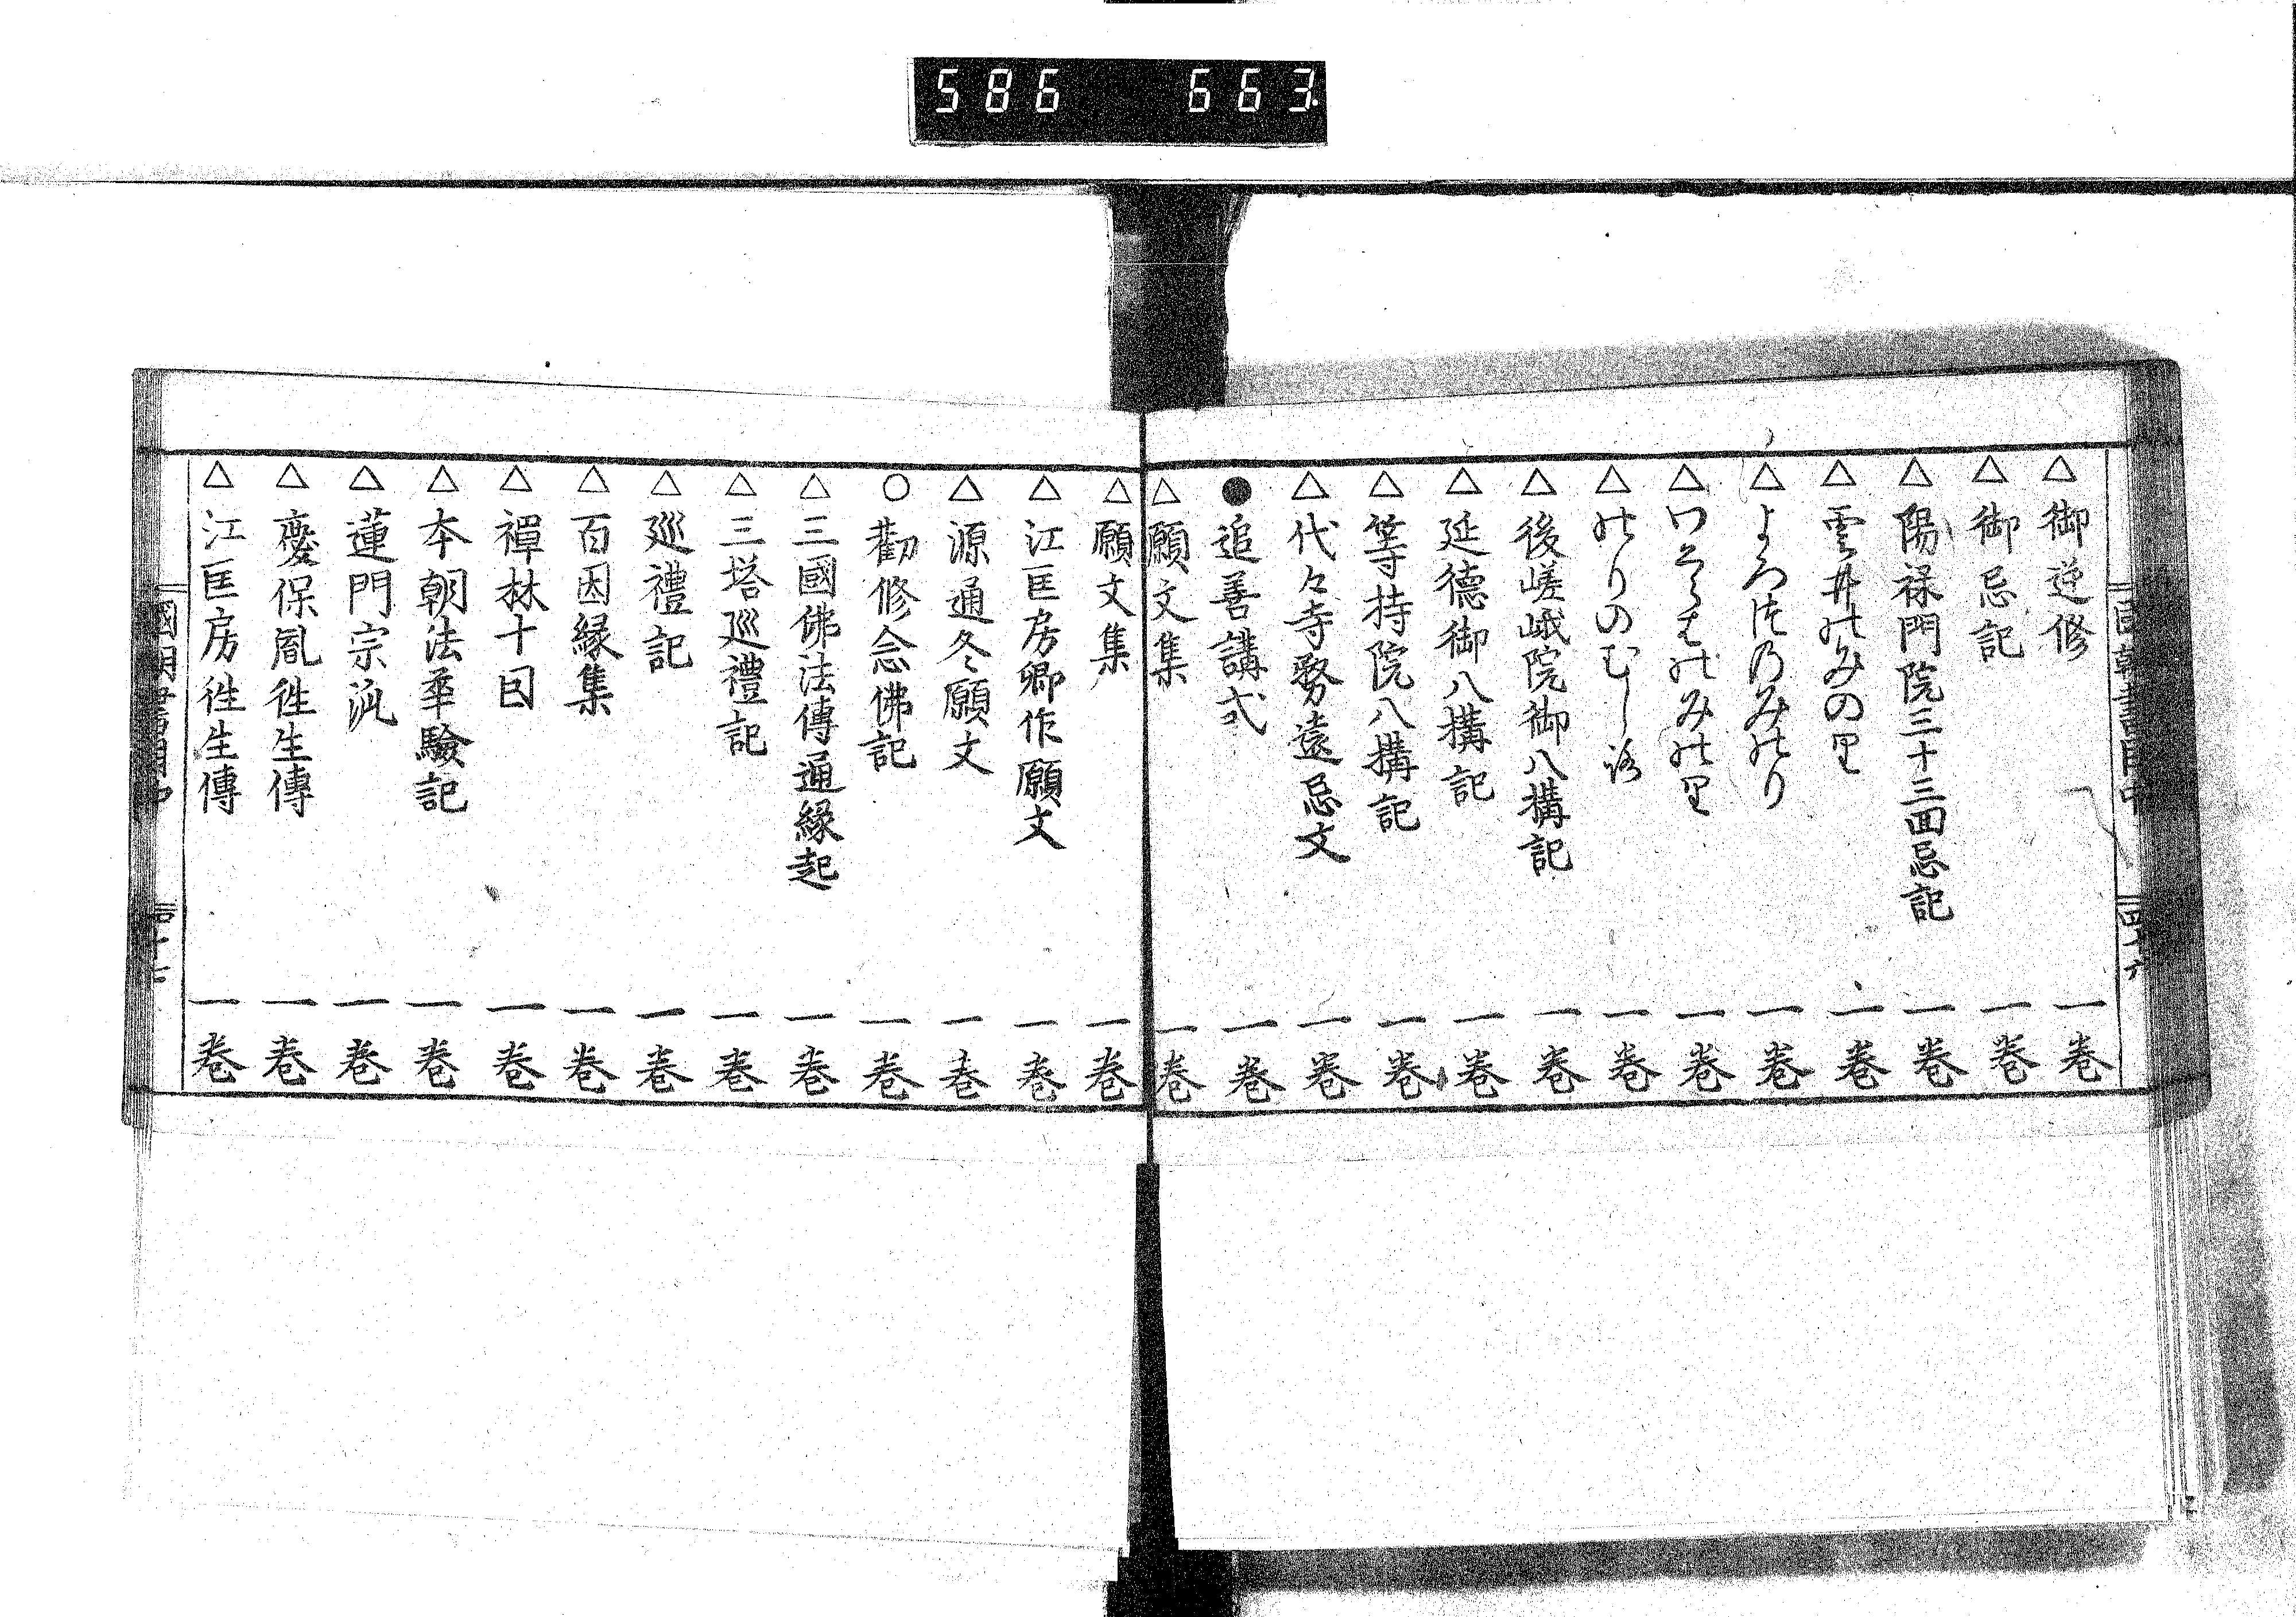 586 663
國朝書目中
四十六
△御逆修 一卷
△御忌記 一卷
△陽祿門院三十三回忌記 一卷
△雲井のみのり 一卷
△よろつ代のみのり 一卷
△みのり 一卷
△のりのむしろ 一卷
△後嵯峨院御八構記 一卷
△延德御八構記 一卷
△等持院八構記 一卷
△代々寺務遠忌文 一卷
●追善講式 一卷
△願文集 一卷
△願文集 一卷
△江匡房卿作願文 一卷
△源通冬願文 一卷
○勸修念佛記 一卷
△三國佛法傳通緣起 一卷
△三塔巡禮記 一卷
△巡禮記 一卷
△百因緣集 一卷
△禪林十因 一卷
△本朝法華驗記 一卷
△蓮門宗派 一卷
△慶保胤徃生傳 一卷
△江匡房徃生傳 一卷
國朝書目中
四十七